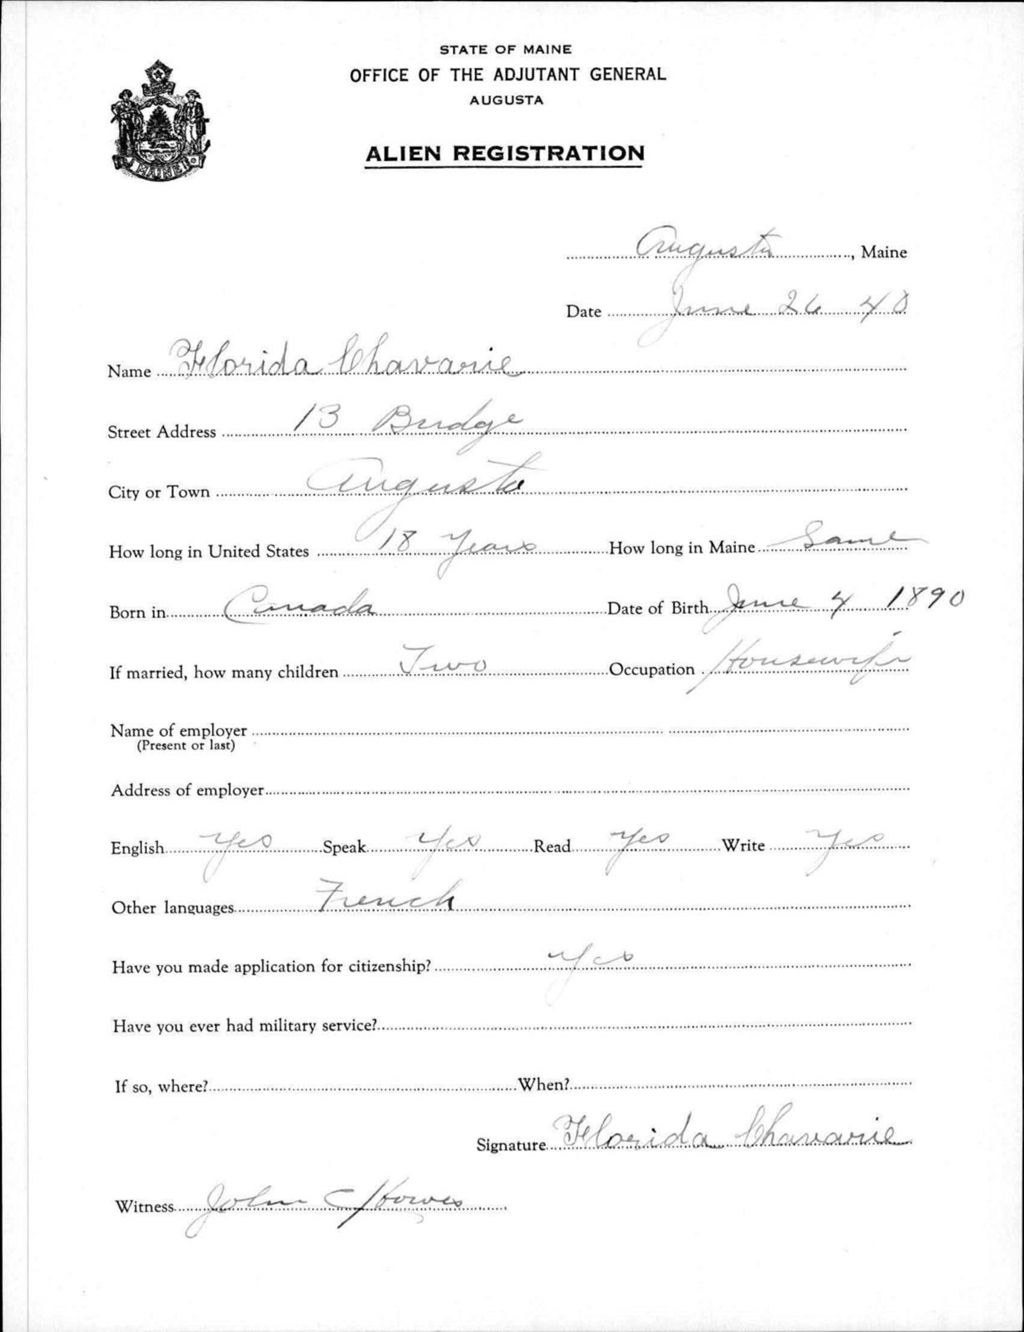 STATE OF MAINE
OFFICE OF THE ADJUTANT GENERAL
AUGUSTA
ALIEN REGISTRATION
MAINE
Augusta, Maine
Date June 26 40
Name Florida Chavarie
Street Address 13 Bridge
City or Town Augusta
How long in United States 18 Years How long in Maine Same
Born in Canada Date of Birth June 4 1890
If married, how many children Two Occupation Housewife
Name of employer
(Present or last)
Address of employer
English Yes Speak Yes Read Yes Write Yes
Other languages French
Have you made application for citizenship? Yes
Have you ever had military service?
If so, where? When?
Signature Florida Chavarie
Witness John C Howes